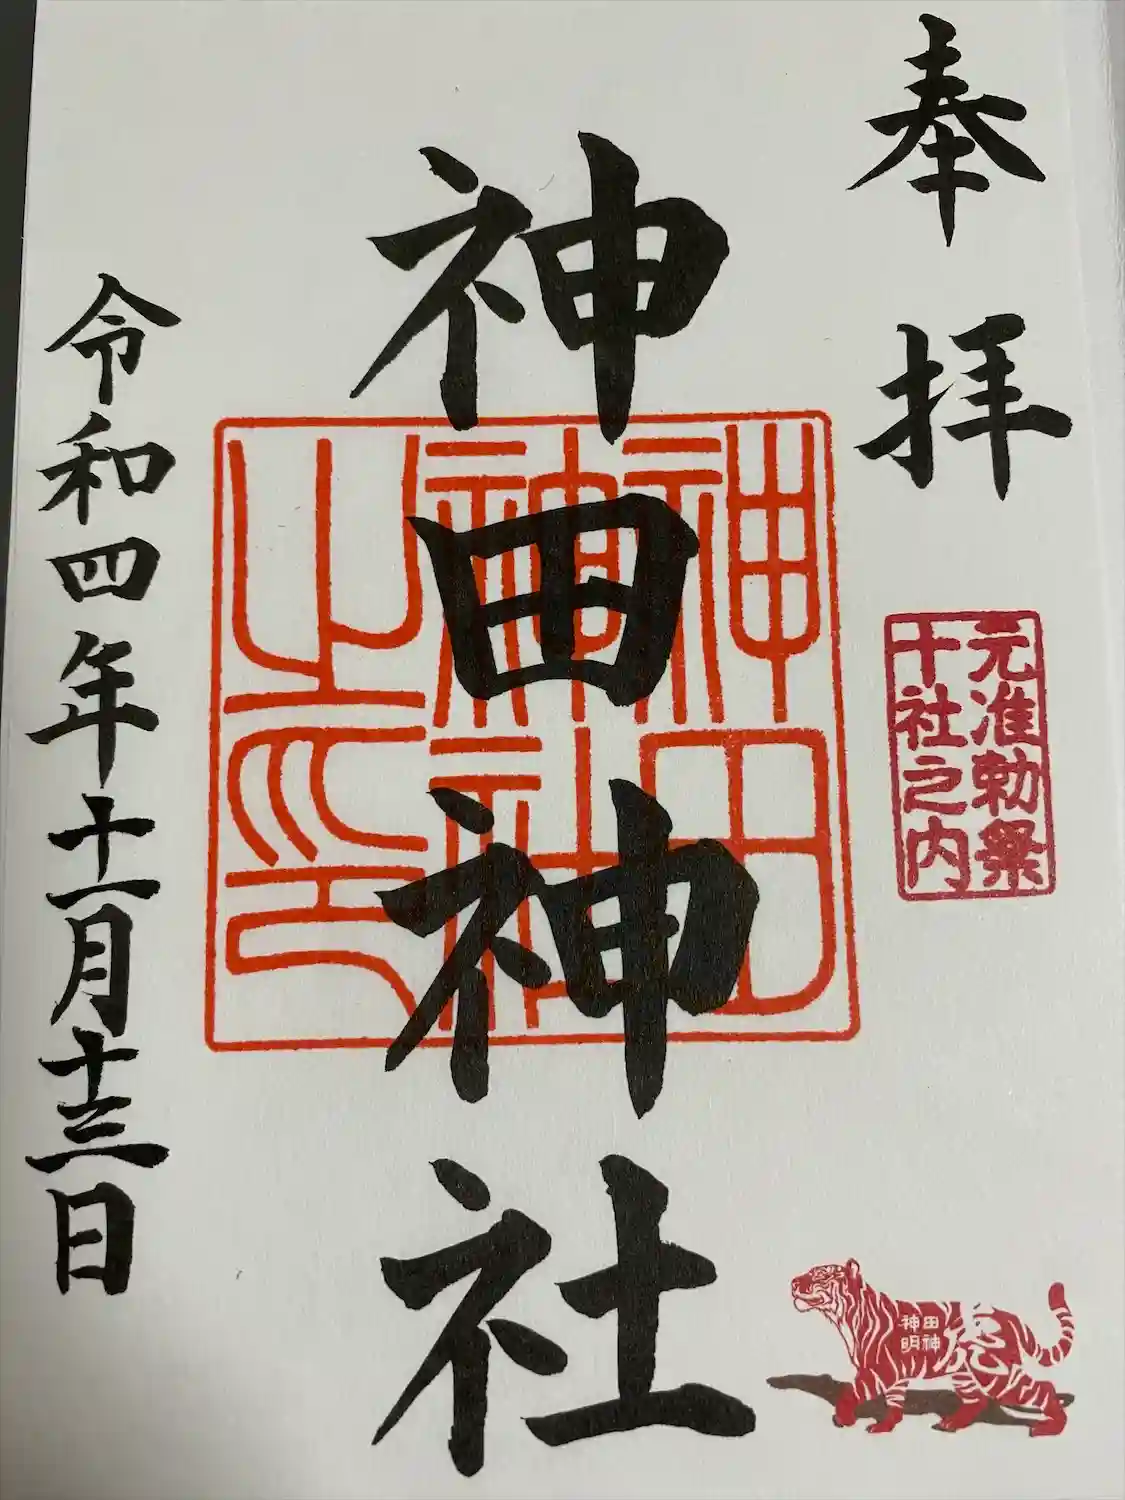 奉拝
元准勅祭
十社之内
神田神社
神田
神社
之印
令和四年十一月十三日
神田
神明
虎